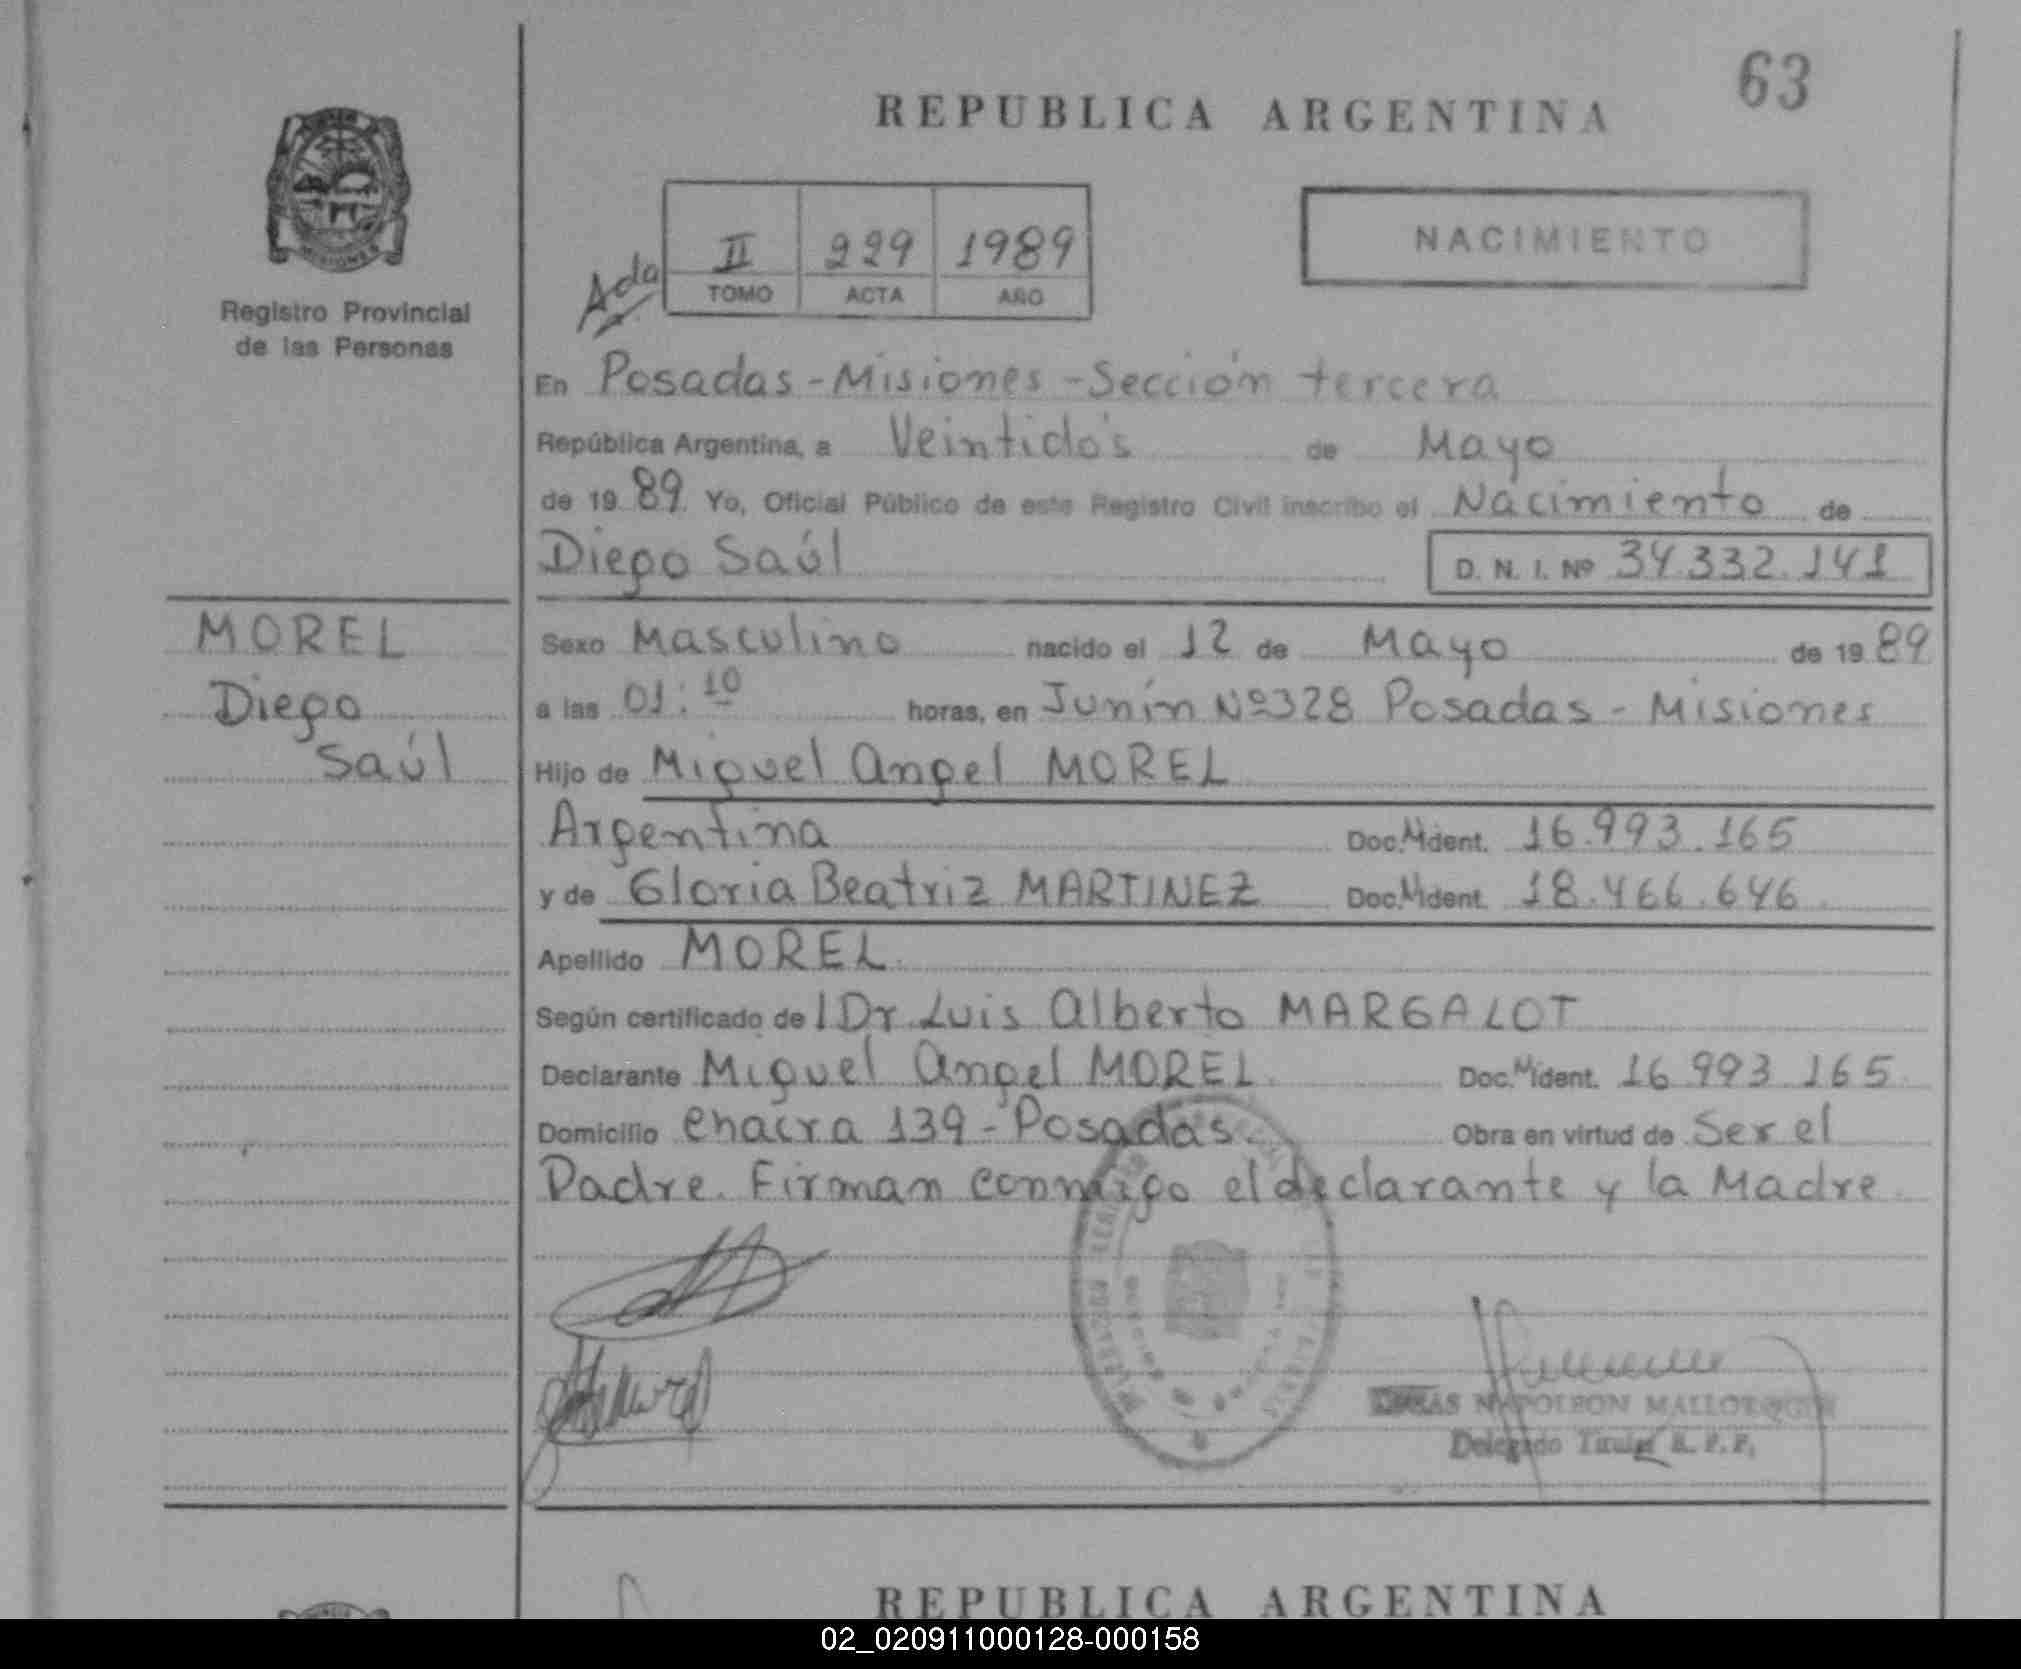 63
REPUBLICA ARGENTINA
NACIMIENTO
II 229 1989
TOMO ACTA AÑO
Registro Provincial
de las Personas
MISIONES
En Posadas - Misiones - Sección tercera
República Argentina, a Veintidós de Mayo
de 19 89. Yo, Oficial Público de este Registro Civil inscribo el Nacimiento de
Diego Saúl D. N. I. Nº 34.332.141
MOREL
Diego
Saúl
Sexo Masculino nacido el 12 de Mayo de 19 89
a las 01:10 horas, en Junín Nº 328 Posadas - Misiones
Hijo de Miguel Angel MOREL
Argentina Doc. M. Ident. 16.993.165
y de Gloria Beatriz MARTINEZ Doc. M. Ident. 18.466.646.
Apellido MOREL.
Según certificado de l Dr. Luis Alberto MARGALOT
Declarante Miguel Angel MOREL. Doc. M. Ident. 16 993 165.
Domicilio Chacra 139 - Posadas. Obra en virtud de Ser el
Padre. Firman conmigo el declarante y la Madre.
NAPOLEON
Delegado Titular R. P. P.
REPUBLICA ARGENTINA
02_020911000128-000158